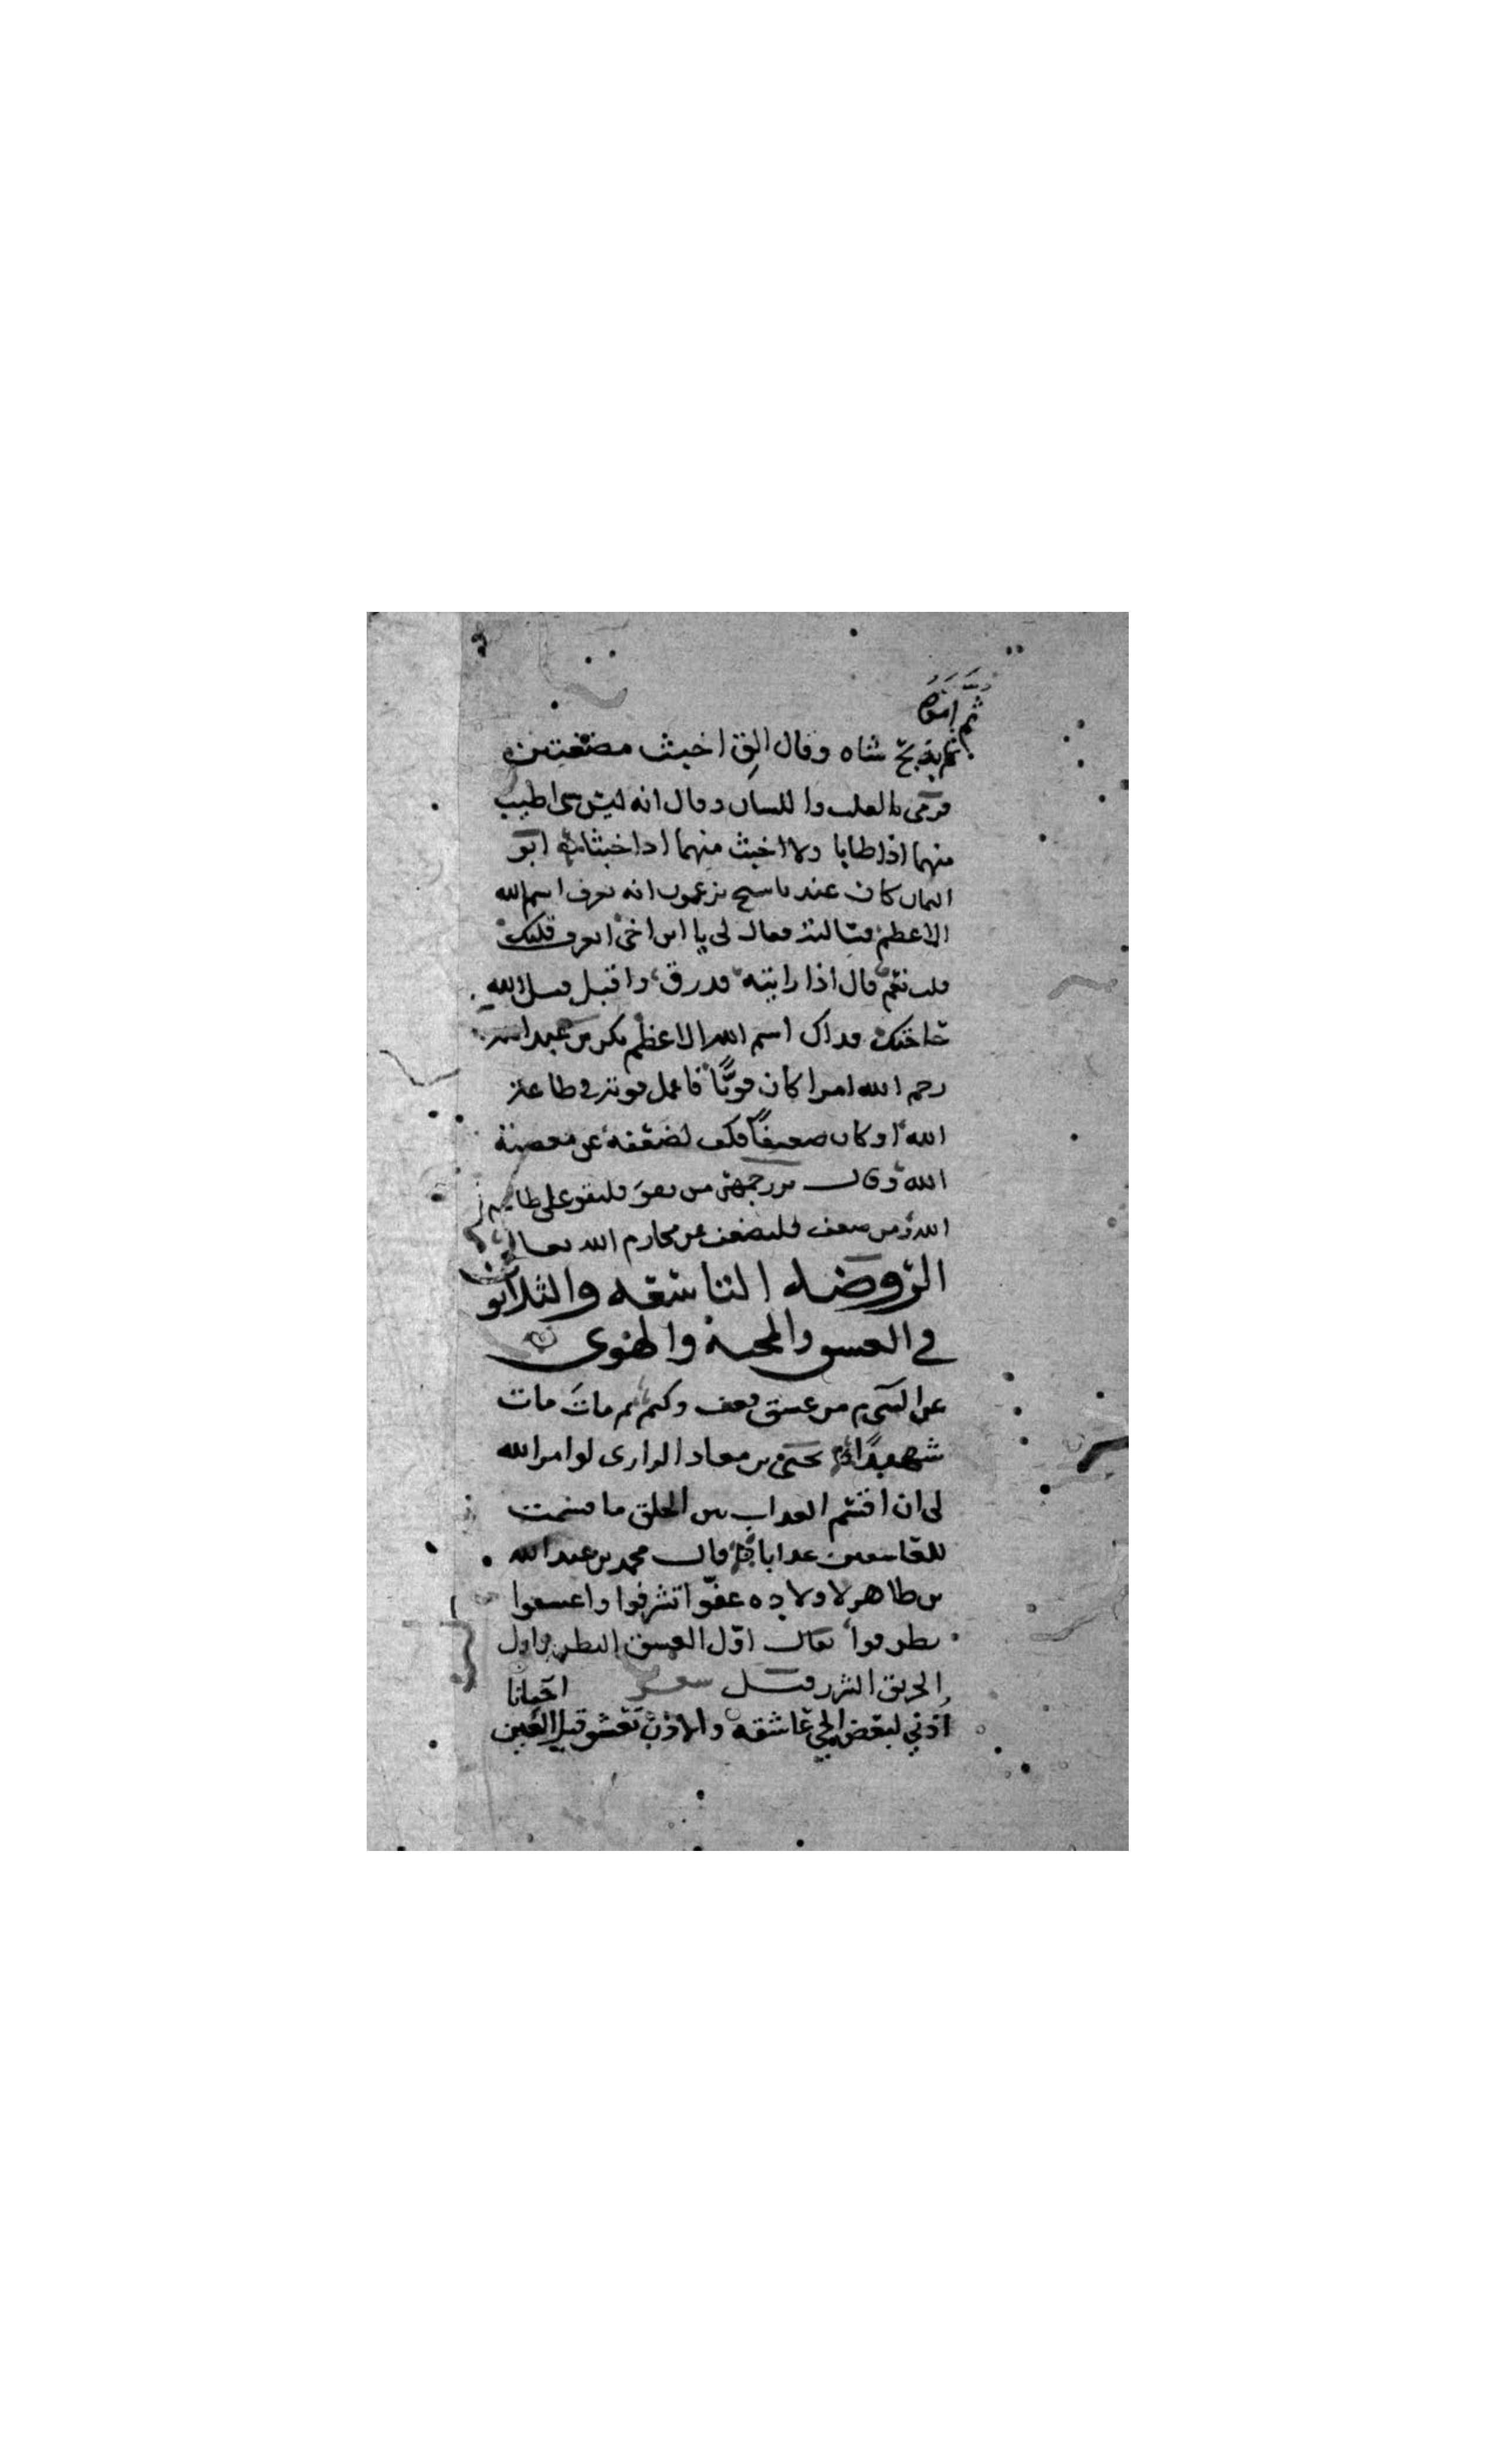 ثم امره
ثم بذبح شاه وقال الق اخبث مضغتين
فرمى بالقلب واللسان وقال انه ليس شى اطيب
منهما اذا طابا ولا اخبث منهما اذا خبثا ابو
اليمان كان عندنا سيح يزعمون انه يعرف اسم الله
الاعظم فسالته فقال لى يا ابن اخى اتعرف قلبك
قلت نعم قال اذا رايته قد رق واقبل فسل الله
حاجتك فذاك اسم الله الاعظم بكر بن عبد الله
رحم الله امرا كان قويا فاعمل قوته فى طاعة
الله او كان ضعيفا فكف لضعفه عن معصية
الله وقال بزرجمهر من يقو فليقو على طاعة
الله ومن ضعف فليضعف عن محارم الله تعالى
الروضه التاسعه والثلاثون
فى العشق والمحبة والهوى
عن النبى م من عشق فعف وكتم ثم مات مات
شهيدا يحيى بن معاد الرازى لو امر الله
لى ان اقسم العذاب بين الخلق ما قسمت
للعاشقين عذابا قال محمد بن عبد الله
بن طاهر لاولاده عفوا تشرفوا واعشقوا
تظرفوا يقال اول العشق النظر واول
الحريق الشرر قيل شعر
اذنى لبعض الحى عاشقه والاذن تعشق قبل العين احيانا